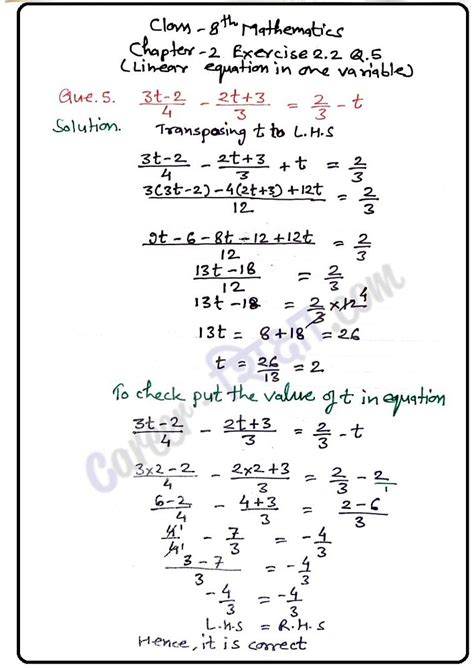 Class - 8th Mathematics
Chapter-2 Exercise 2.2 Q.5
(Linear equation in one variable)
Que.5. (3t-2)/4 - (2t+3)/3 = 2/3 - t
Solution. Transposing t to L.H.S
(3t-2)/4 - (2t+3)/3 + t = 2/3
(3(3t-2)-4(2t+3)+12t)/12 = 2/3
(9t-6-8t-12+12t)/12 = 2/3
(13t-18)/12 = 2/3
13t-18 = 2/3 × 12 4
13t = 8+18 = 26
t = 26/13 = 2
To check put the value of t in equation
(3t-2)/4 - (2t+3)/3 = 2/3 - t
(3×2-2)/4 - (2×2+3)/3 = 2/3 - 2/1
(6-2)/4 - (4+3)/3 = (2-6)/3
4 1/4 1 - 7/3 = -4/3
(3-7)/3 = -4/3
-4/3 = -4/3
L.H.S = R.H.S
Hence, it is correct
Career शिक्षा.com